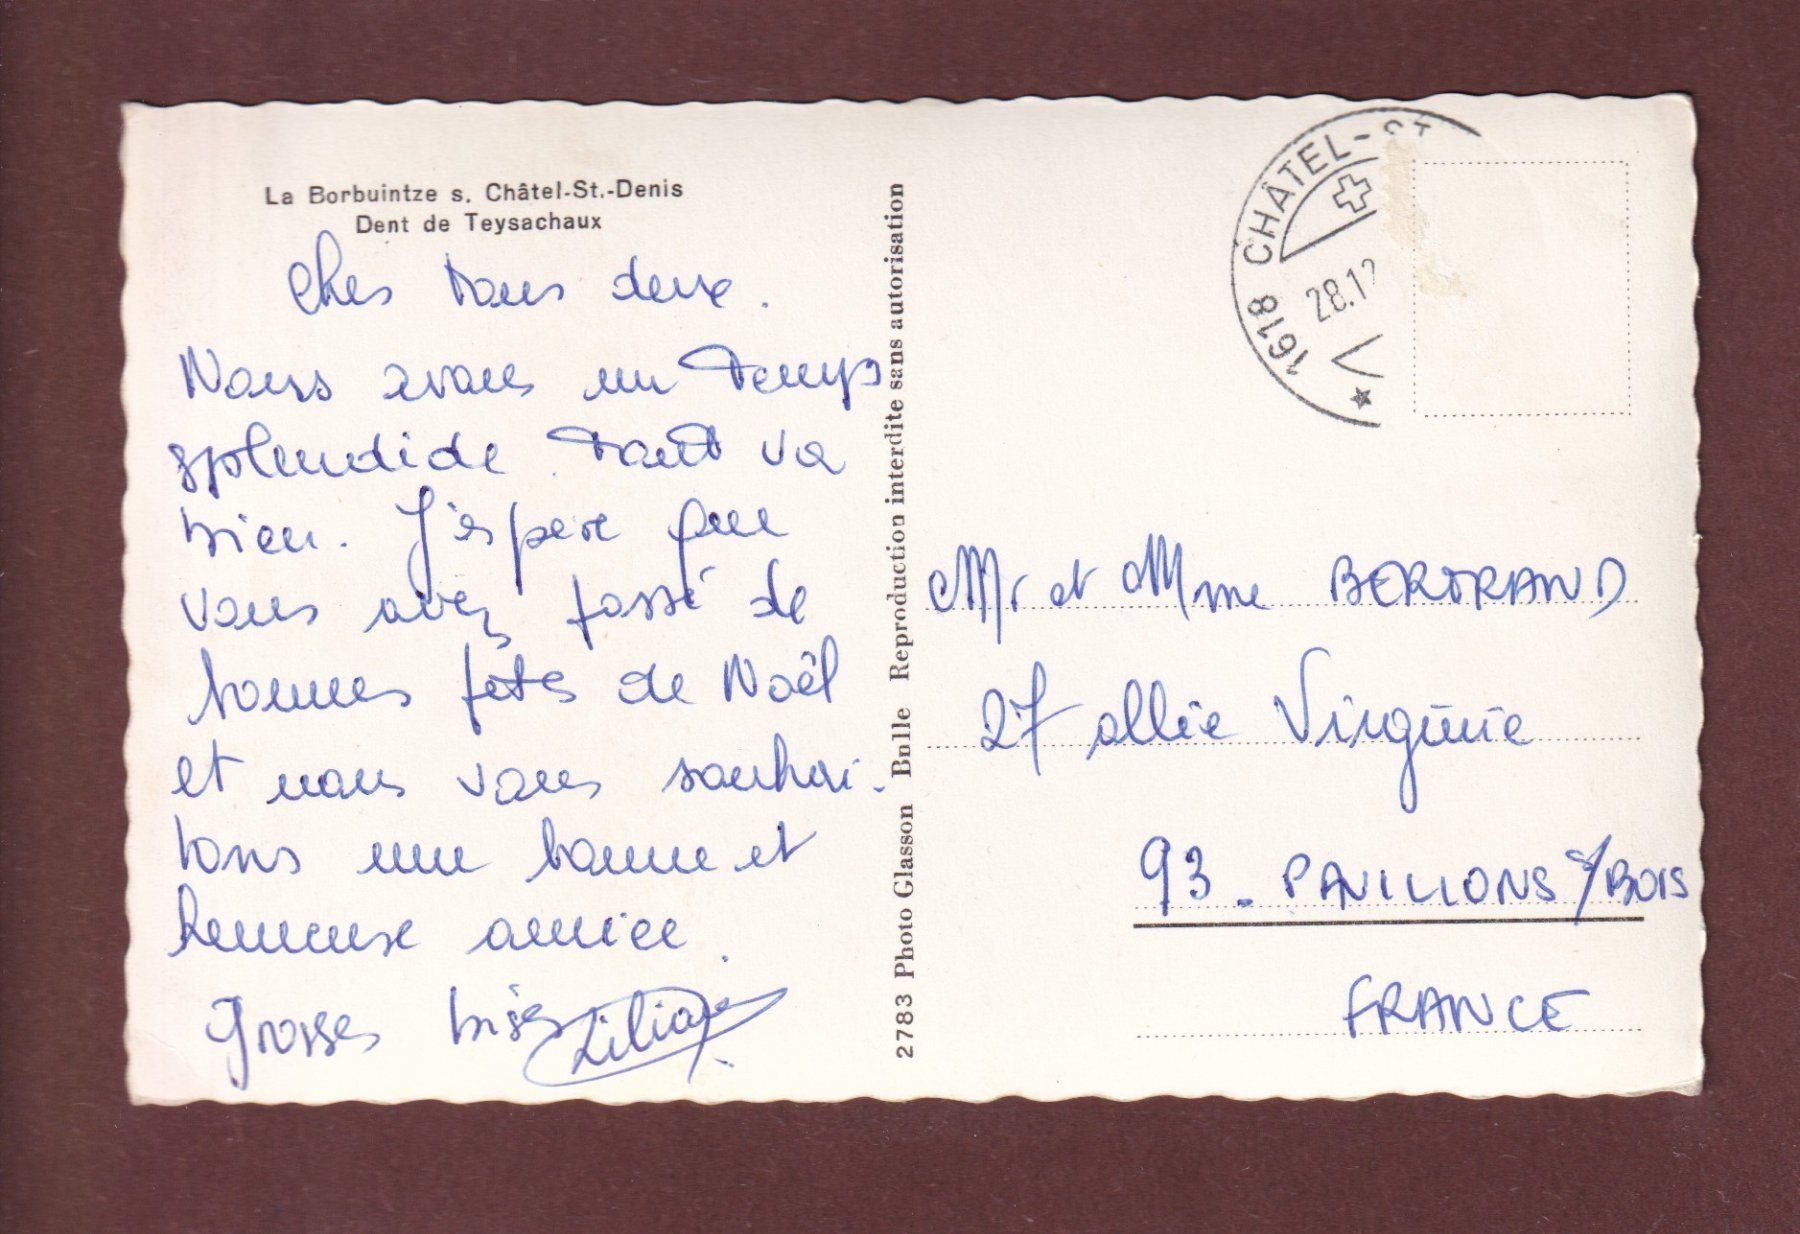 La Borbuintze s. Châtel-St.-Denis
Dent de Teysachaux
Chers tous deux.
Nous avons un temps
splendide. tout va
bien. J'espère que
vous avez passé de
bonnes fêtes de Noël
et nous vous souhai-
tons une bonne et
heureuse année.
Grosses bises Liliane
2783 Photo Glasson Bulle Reproduction interdite sans autorisation
1618 CHÂTEL-ST
28.12
Mr et Mme BERTRAND
27 allée Virginie
93 - PAVILLONS s/BOIS
FRANCE